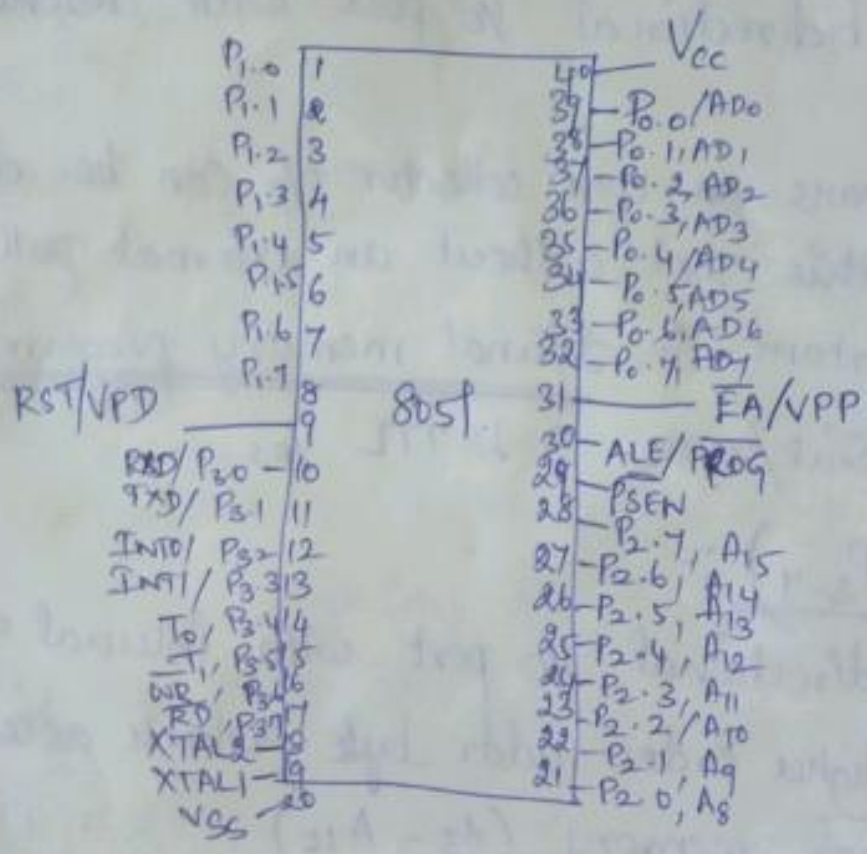 P1.0 1
P1.1 2
P1.2 3
P1.3 4
P1.4 5
P1.5 6
P1.6 7
P1.7 8
RST/VPD 9
RXD/P3.0 10
TXD/P3.1 11
INT0/P3.2 12
INT1/P3.3 13
T0, P3.4 14
T1, P3.5 15
W̅R̅, P3.6 16
R̅D̅, P3.7 17
XTAL2 18
XTAL1 19
VSS 20
8051
40 VCC
39 P0.0/AD0
38 P0.1, AD1
37 P0.2, AD2
36 P0.3, AD3
35 P0.4/AD4
34 P0.5, AD5
33 P0.6, AD6
32 P0.7, AD7
31 E̅A̅/VPP
30 ALE/P̅R̅O̅G̅
29 P̅S̅E̅N̅
28 P2.7, A15
27 P2.6, A14
26 P2.5, A13
25 P2.4, A12
24 P2.3, A11
23 P2.2/A10
22 P2.1, A9
21 P2.0, A8